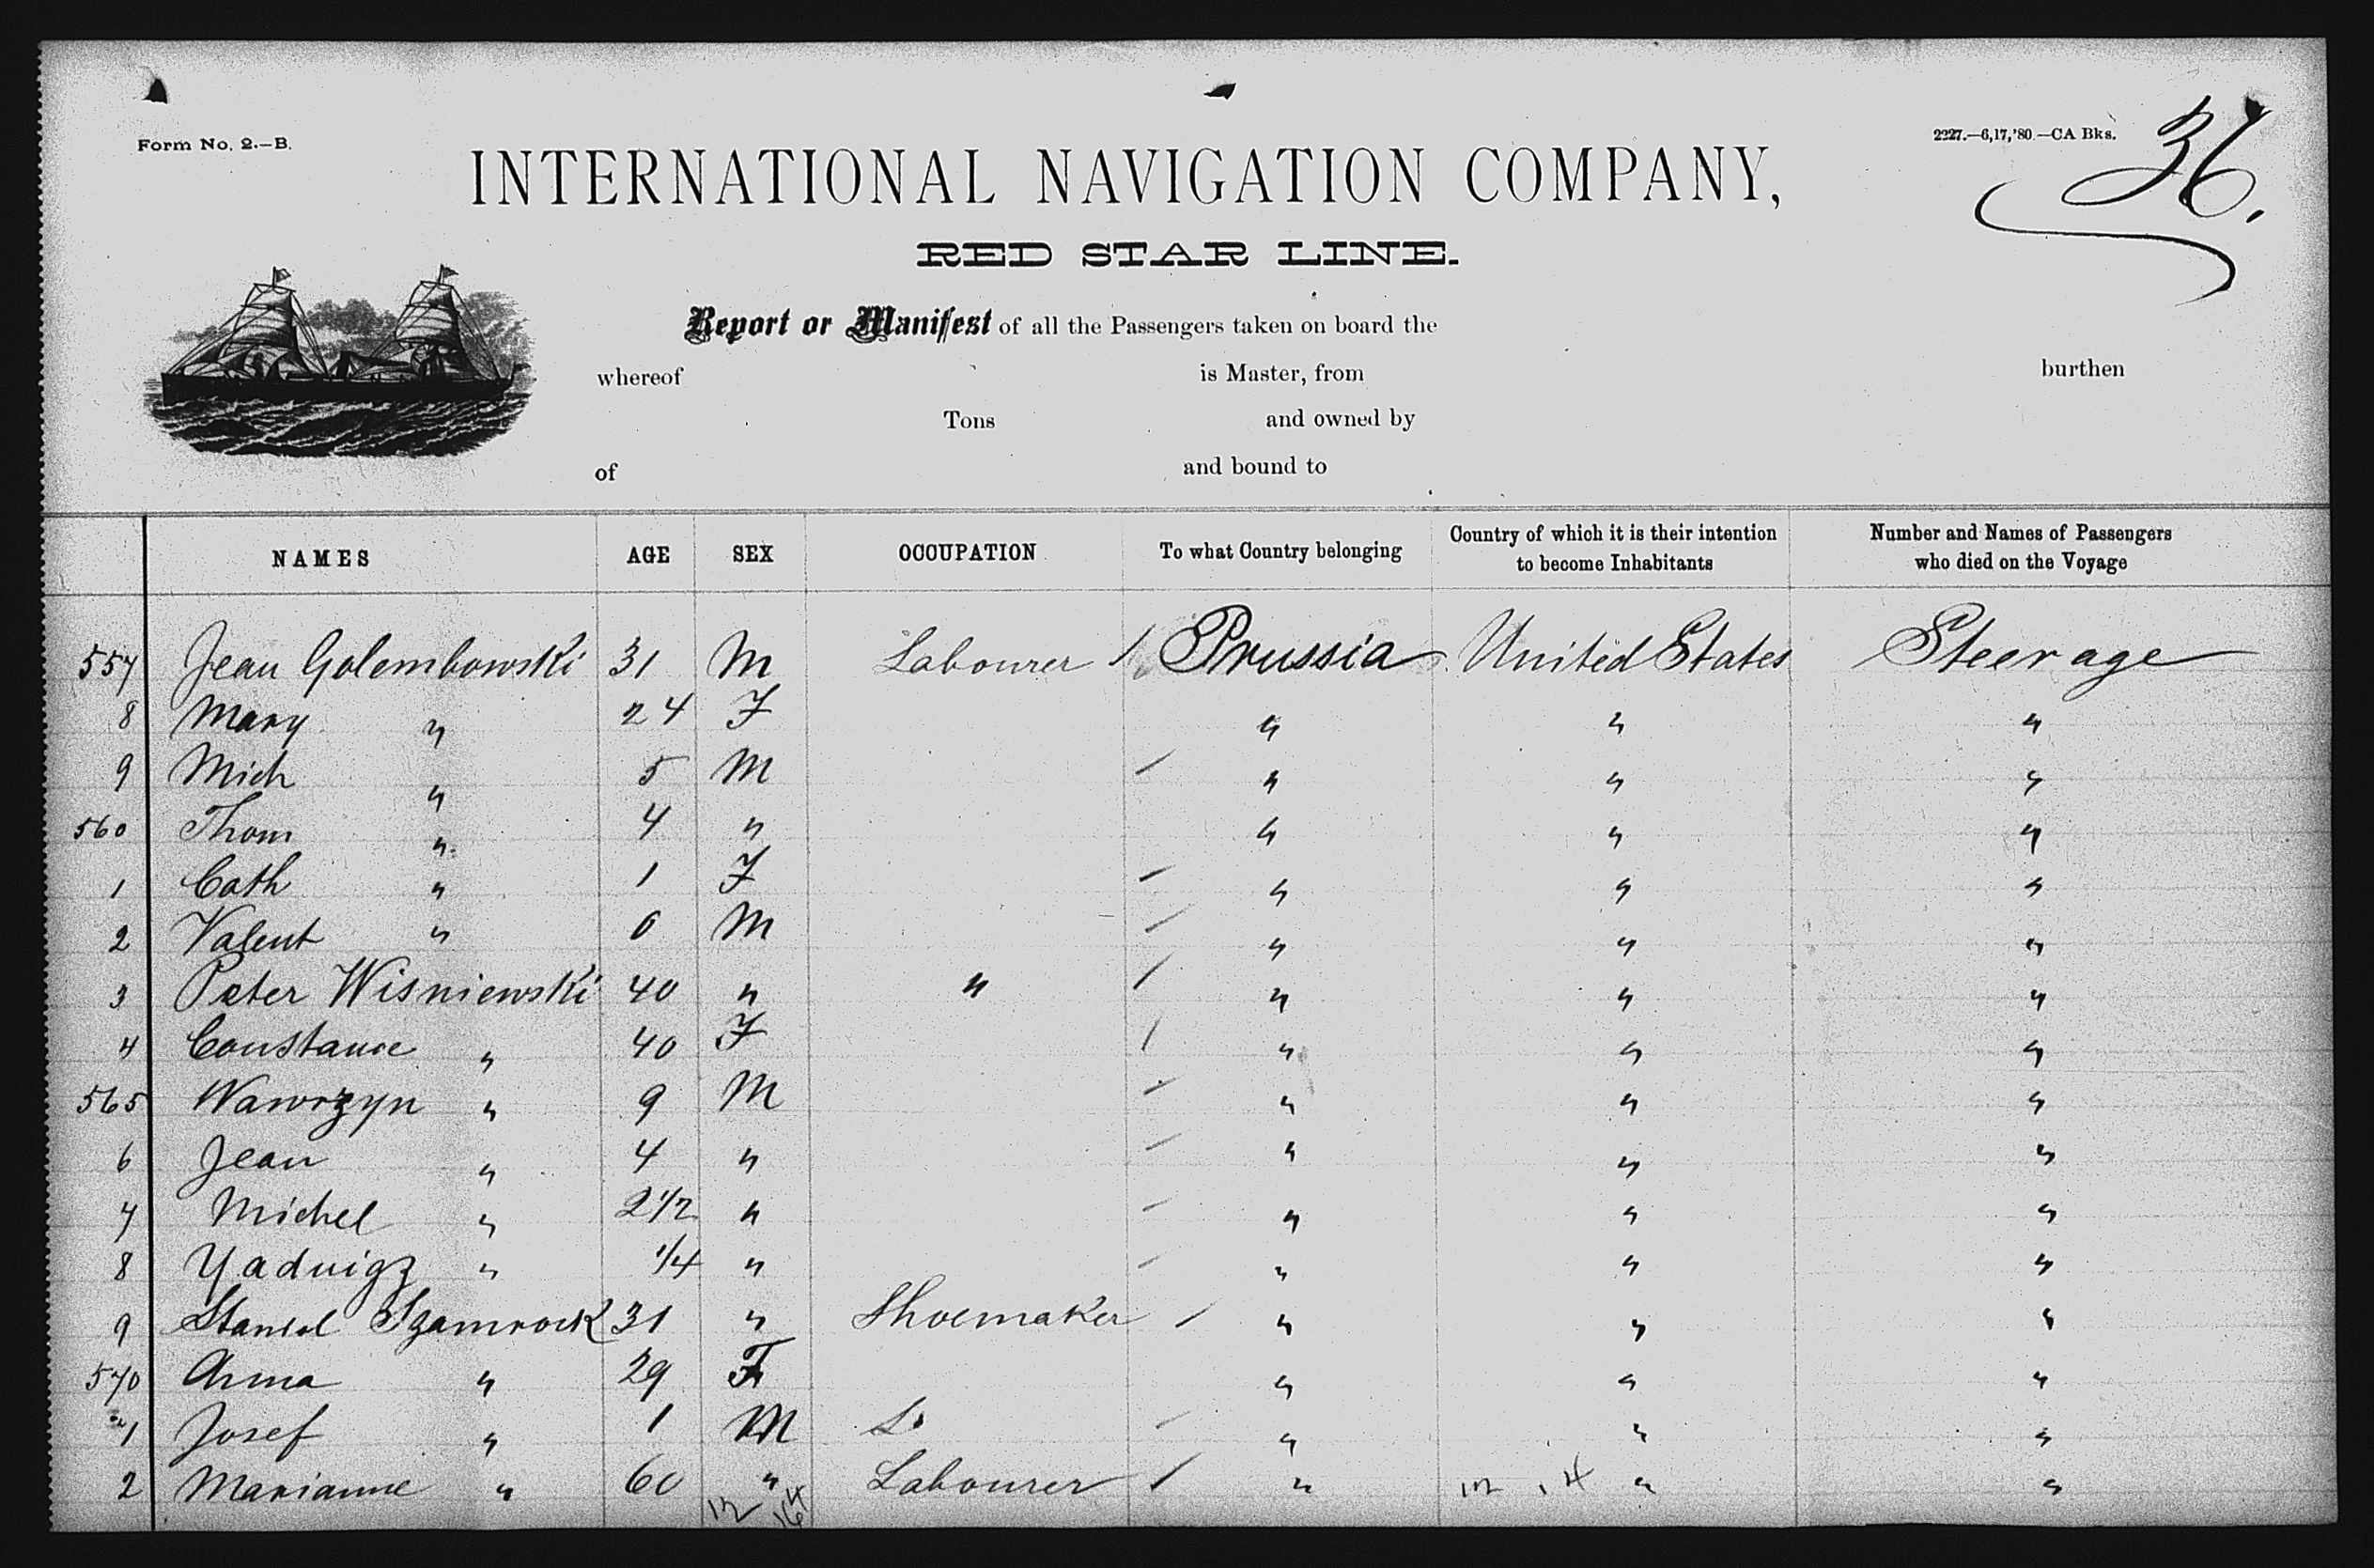 Form No. 2.—B.
2227.—6,17,'80.—CA Bks.
36.
INTERNATIONAL NAVIGATION COMPANY,
RED STAR LINE.
Report or Manifest of all the Passengers taken on board the
whereof is Master, from burthen
Tons and owned by
of and bound to
NAMES AGE SEX OCCUPATION To what Country belonging Country of which it is their intention to become Inhabitants Number and Names of Passengers who died on the Voyage
557 Jean Golembowski 31 M Labourer / Prussia United States Steerage
8 Mary " 24 F " " "
9 Mich " 5 M / " " "
560 Thom " 4 " " " "
1 Cath " 1 F / " " "
2 Valent " 0 M / " " "
3 Peter Wisniewski 40 " " / " " "
4 Constance " 40 F / " " "
565 Wawrzyn " 9 M / " " "
6 Jean " 4 " / " " "
7 Michel " 2 1/2 " / " " "
8 Yadwigz " 1/4 " / " " "
9 Stanisl Szamrock 31 " Shoemaker / " " "
570 Anna " 29 F " " "
1 Josef " 1 M / " " "
2 Marianne " 60 " Labourer / " " "
12 164 12 14